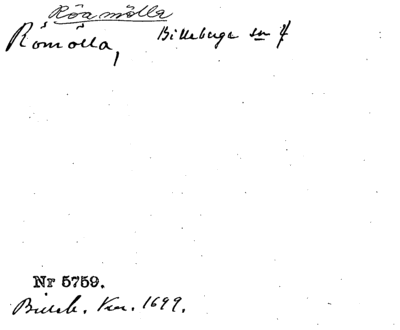 Röa mölla
Römölla, Billeberga sn
Nr 5759.
Billeb. 1699.